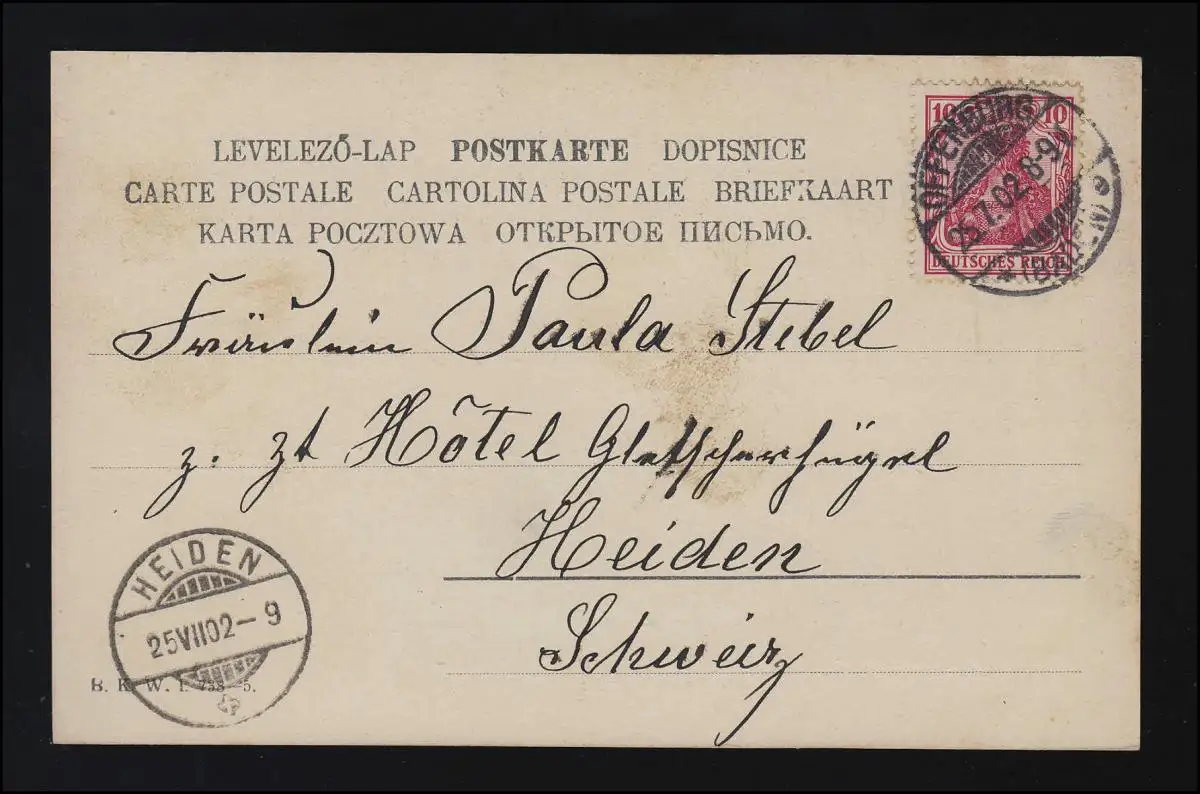 LEVELEZŐ-LAP POSTKARTE DOPISNICE
CARTE POSTALE CARTOLINA POSTALE BRIEFKAART
KARTA POCZTOWA ОТКРЫТОЕ ПИСЬМО.
10 10
DEUTSCHES REICH
OFFENBURG
25.7.02 8-9
Fräulein Paula Stebel
z. Zt Hôtel Gletscherhügel
Heiden
Schweiz
HEIDEN
25 VII 02 – 9
B. K. W. I. 738–5.